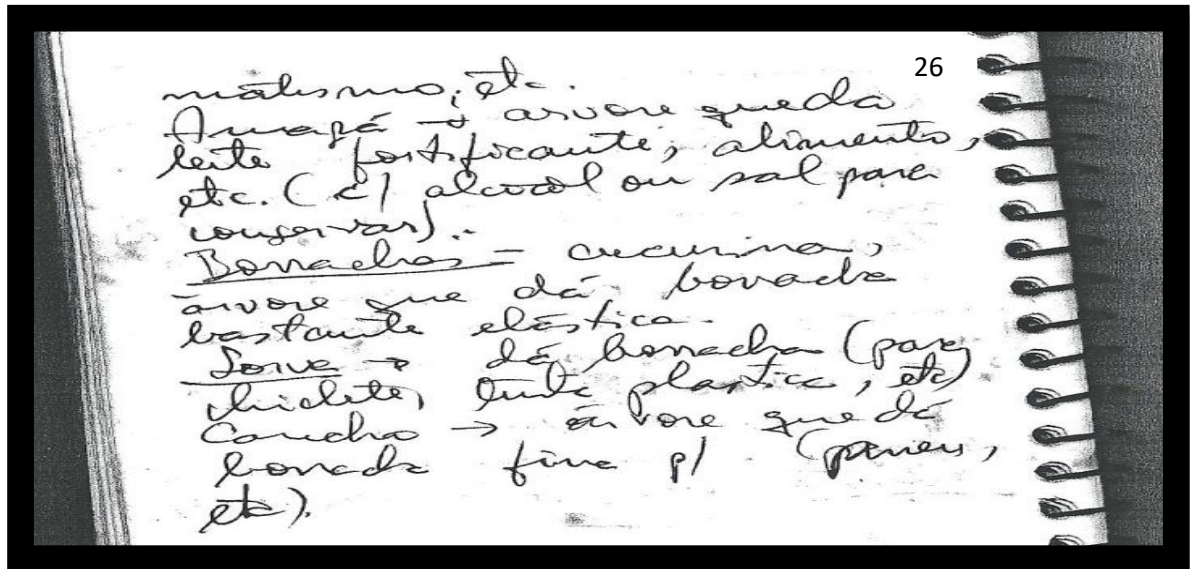 26
matismo, etc.
Amapá → arvore que da
leite fortificante, alimento,
etc. (c/ alcool ou sal para
conservar).
Borrachas =
árvore que dá borracha
bastante elástica.
Sorva → dá borracha (para
chiclete, tinta plastica, etc)
Caucho → árvore que dá
borracha fina p/ (pneus,
etc).